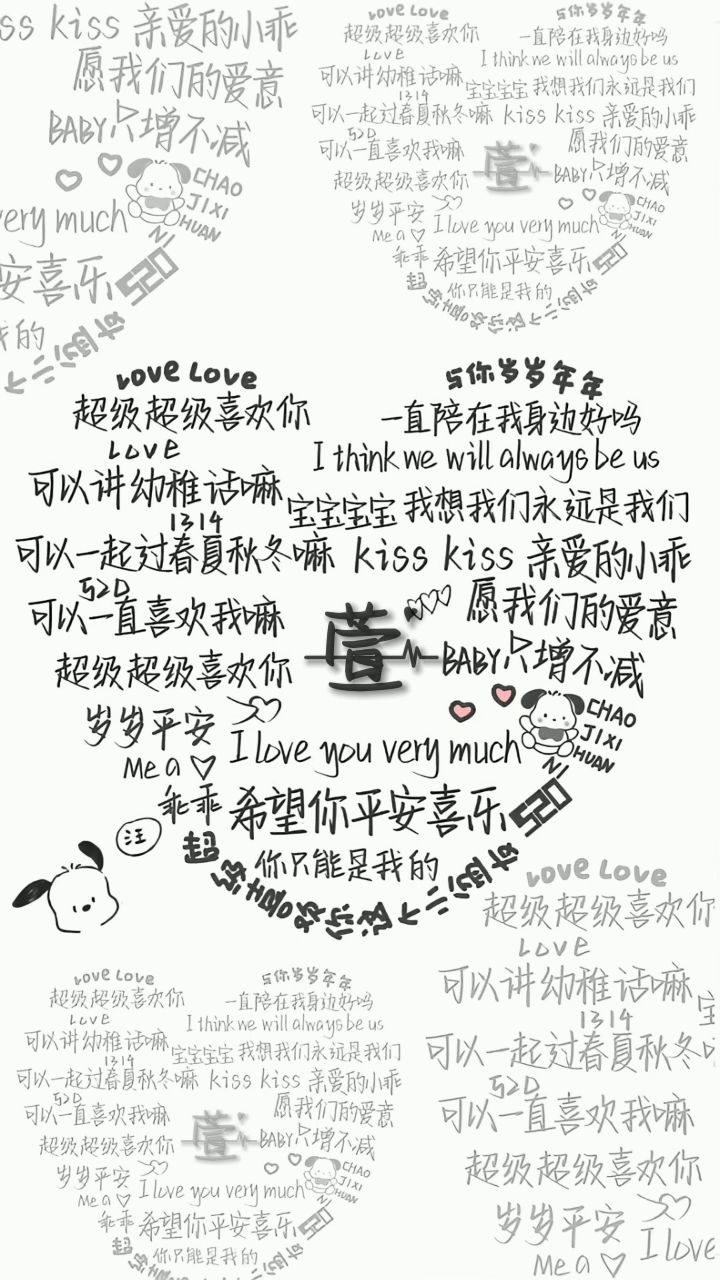 ss kiss 亲爱的小乖
愿我们的爱意
BABY只增不减
CHAO
JI XI
HUAN
NI
very much
安喜乐 520
的
Love Love
与你岁岁年年
超级超级喜欢你
一直陪在我身边好吗
Love
I think we will always be us
可以讲幼稚话嘛
宝宝宝宝 我想我们永远是我们
1314
可以一起过春夏秋冬嘛 kiss kiss 亲爱的小乖
520
可以一直喜欢我嘛
愿我们的爱意
萱
超级超级喜欢你
BABY只增不减
岁岁平安
CHAO
JI XI
HUAN
NI
Me a ♡
I love you very much
乖乖 希望你平安喜乐 520
你只能是我的
Love Love
与你岁岁年年
超级超级喜欢你
一直陪在我身边好吗
Love
I think we will always be us
可以讲幼稚话嘛
宝宝宝宝 我想我们永远是我们
1314
可以一起过春夏秋冬嘛 kiss kiss 亲爱的小乖
520
可以一直喜欢我嘛
愿我们的爱意
萱
超级超级喜欢你
BABY只增不减
岁岁平安
CHAO
JI XI
HUAN
NI
Me a ♡
I love you very much
乖乖 希望你平安喜乐 520
你只能是我的
汪
Love Love
超级超级喜欢你
Love
可以讲幼稚话嘛
宝
1314
可以一起过春夏秋冬
520
可以一直喜欢我嘛
超级超级喜欢你
岁岁平安
Me a ♡
I love
Love Love
与你岁岁年年
超级超级喜欢你
一直陪在我身边好吗
Love
I think we will always be us
可以讲幼稚话嘛
宝宝宝宝 我想我们永远是我们
1314
可以一起过春夏秋冬嘛 kiss kiss 亲爱的小乖
520
可以一直喜欢我嘛
愿我们的爱意
萱
超级超级喜欢你
BABY只增不减
岁岁平安
CHAO
JI XI
HUAN
NI
Me a ♡
I love you very much
乖乖 希望你平安喜乐 520
你只能是我的